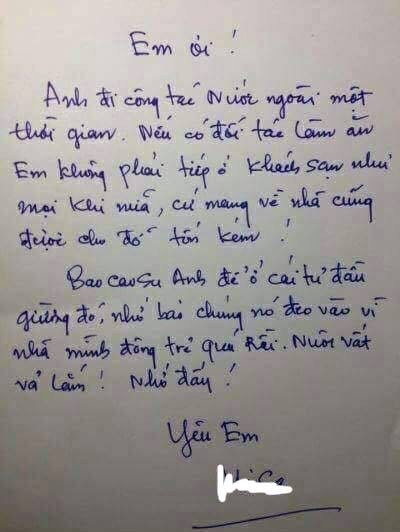 Em ơi !
Anh đi công tác Nước ngoài một
thời gian. Nếu có đối tác làm ăn
Em không phải tiếp ở Khách sạn như
mọi khi nữa, cứ mang về nhà cũng
được cho đỡ tốn kém !
Bao cao su Anh để ở cái tủ đầu
giường đó, nhớ bảo chúng nó đeo vào vì
nhà mình đông trẻ quá Rồi. Nuôi vất
vả lắm ! Nhớ đấy !
Yêu Em